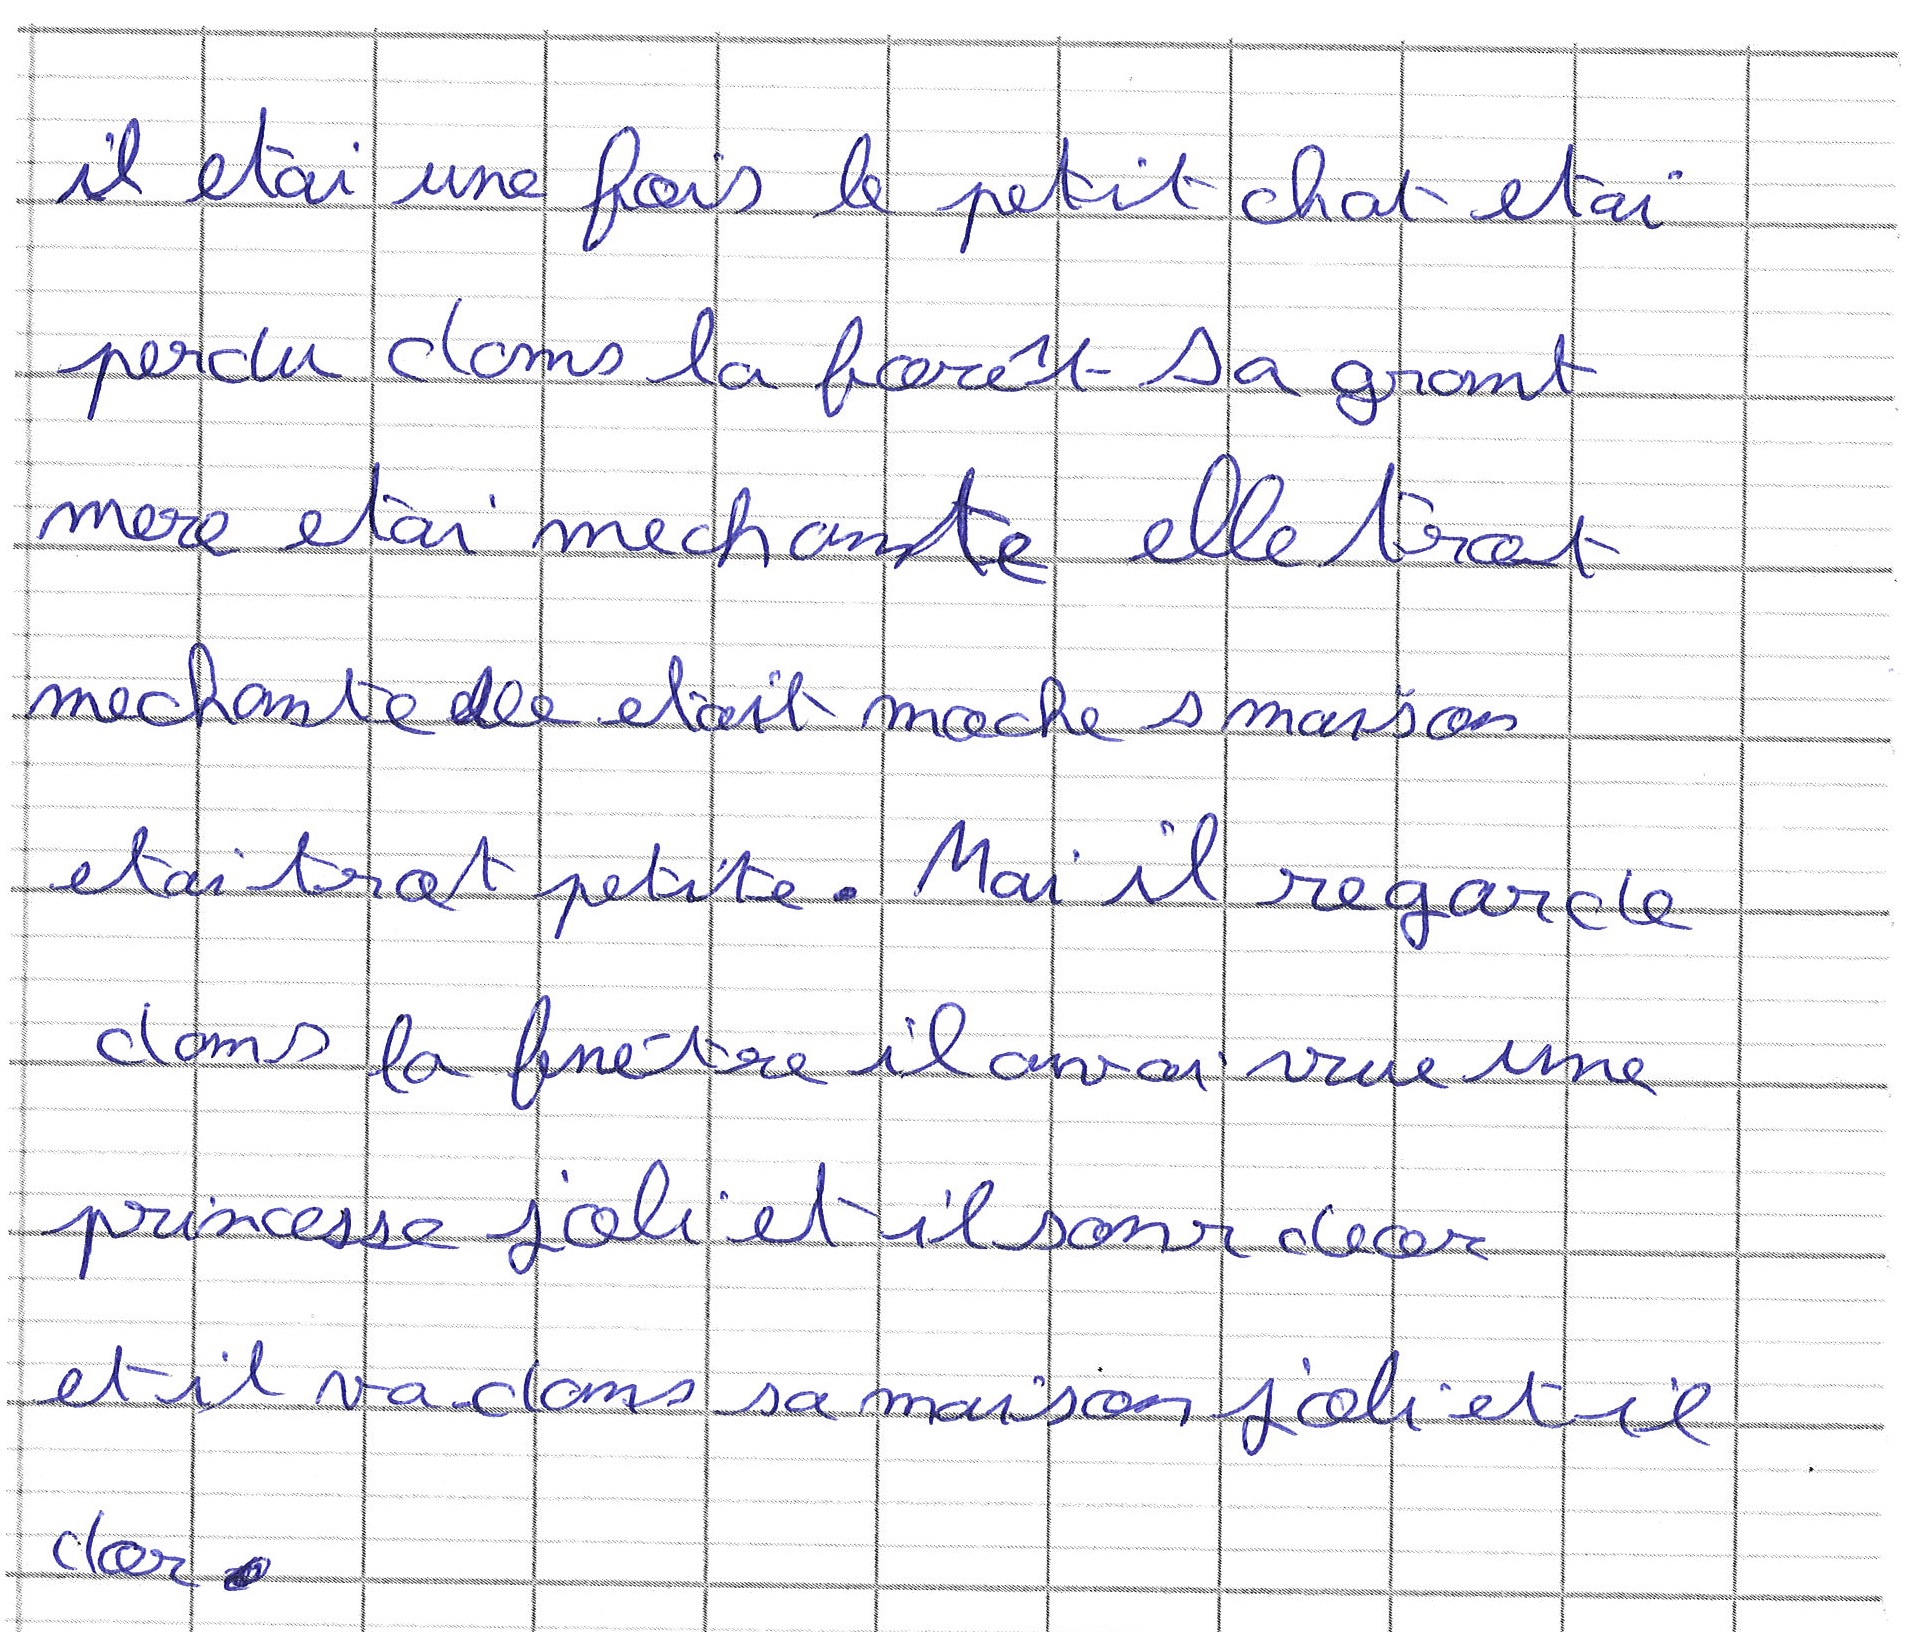 il etai une fois le petit chat etai
perdu dans la forêt sa grant
mere etai mechante elle trot
mechante elle etait moche s maison
etai trot petite. Mai il regarde
dans la fenêtre il avai vue une
princesse joli et il sanr deor
et il va dans sa maison joli et il
dor.